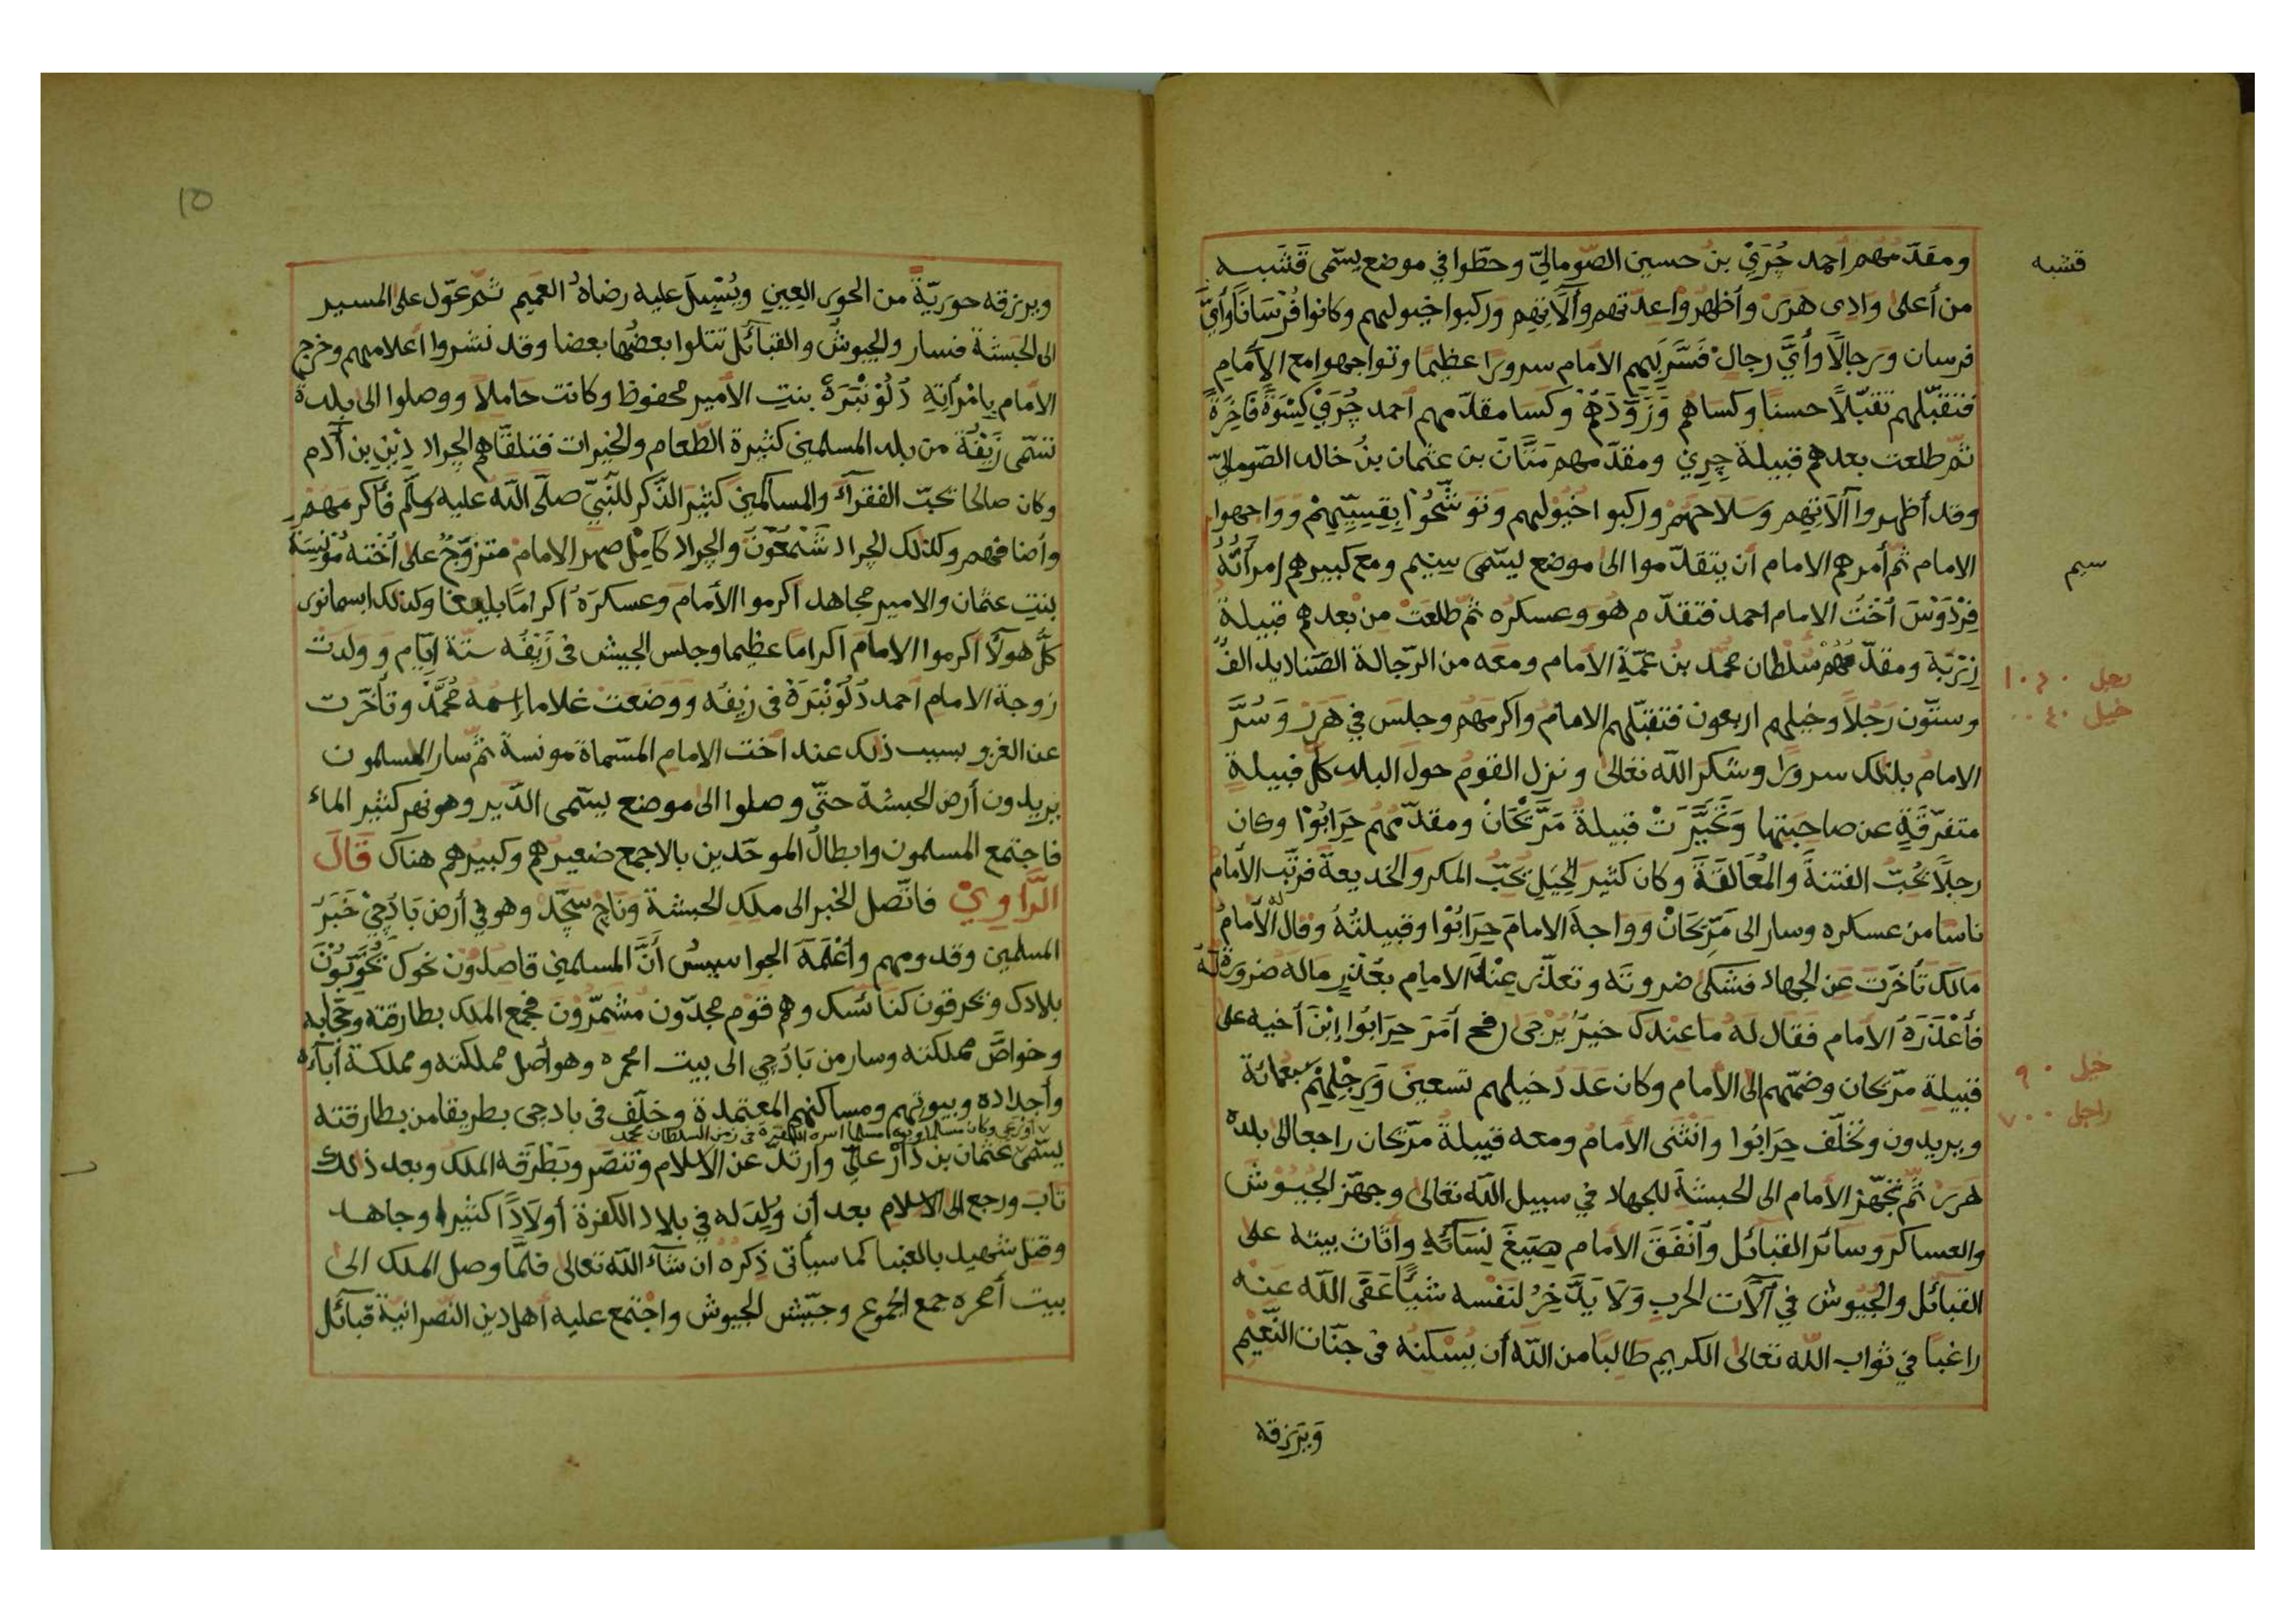 ومقدّمهم احمد جُرَيْ بن حسين الصّوماليّ وحطّوا في موضع يسمّى قَشَبه
قشبه
من أعلى وادى هَرَرْ وأظهروا عدّتهم وآلاتهم وركبوا خيولهم وكانوا فُرْسَاناً وأيَّ
فرسان ورجالاً وأَيَّ رجال فَسَّرَ بهم الامام سرورا عظيما وتواجهوا مع الامام
فتقبّلهم تقبّلاً حسناً وكساهم وَزَوَّدَهُمْ وكسا مقدّمهم احمد جُرَيْ كِسْوَةً فَاخِرَةً
ثمّ طلعت بعدهم قبيلة جِرِي ومقدّمهم مَتَّانَ بن عثمان بنُ خالد الصّوماليّ
وقد أظهروا آلاتهم وسلاحهم وركبوا خيولهم وتوشّحُوْا بِقِسِيِّهِمْ وواجهوا
الامام ثمّ أمرهم الامام أن يتقدّموا الى موضع يسمّى سِيم ومع كبيرهم امرأتُهُ
سيم
فِرْدَوْسَ اُخْتُ الامام احمد فتقدّم هو وعسكره ثمّ طلعَتْ من بعدهم قبيلة
زَرْبَة ومقدّمهُمْ سُلْطان محمّد بنُ عَمّةِ الامام ومعه من الرّجالة الصّناديد الفٌ
رجل ١٠٦٠
وستّون رَجُلاً وخيلهم اربعون فتقبّلهم الامامُ واكرمهم وجلس في هَرَرْ وَسُرَّ
خيل ٠٤٠
الامامُ بذلك سرورًا وشكر الله تعالى ونزل القومُ حول البلد كلّ قبيلةٍ
متفرّقةٍ عن صاحبتها وَتَحَيَّرَتْ قبيلةُ مَرَّيْحَانْ ومقدّمُهم حِرَابُوْا وكان
رجلاً يُحِبُّ الفتنةَ والْمُعَالَقَةَ وكان كثير الحِيَلِ يُحِبّ المكر والخديعة فرتّب الأمامُ
ناسًا من عسكره وسار الى مَرِّيحَانْ وَوَاجهَ الامامَ حِرَابُوْا وقبيلتُهُ وقال لَهُ الأمامُ
مالك تأخّرت عن الجهاد فشكى ضرورته وتعذّر عِنْدَ الامام بعُذْرٍ ماله ضَرُورة لَهُ
فأعْذَرَهُ الامام فقال لَهُ ما عندك خيرٌ يُرْجَى رفح اَمَرَ حِرَابُوا اِبْنَ أخيه على
قبيلةِ مرّيحان وضمّهم الى الأمام وكان عَدَدُ خيلهم تسعين وَرِجْلِهِمْ سَبْعُمائة
خيل ٩٠
راجل ٧٠٠
ويريدون وتخَلَّف حِرَابُوا وانْثَنَى الأمامُ ومعه قبيلةُ مرّيحان راجعا الى بلده
هَرَرْ ثمّ تجهّز الأمام الى الحبشة للجهاد في سبيل الله تعالى وجهّز الجُيُوْشَ
والعساكرَ وسائرَ القبائل وَاَنْفَقَ الأمام صِيَغَ نِسَائِهِ وأثاث بيته على
القبائل والجُيُوش في آلات الحربِ وَلَا يَدَّخِرُ لنَفْسه شيئاً عَفَى الله عَنْه
راغباً في ثواب الله تعالى الكريم طَالِباً من الله أن يُسْكنه في جنّات النَّعِيْم
وَيَرْزقه
١٥
ويرزقه حوريّةً من الحور العِين ويُسْبِلَ عليه رضاهُ العَمِيم ثمّ عوّل على المسير
الى الحَبَشة فسار والجيوشُ والقبائل تتلوا بعضُها بعضا وقد نشروا اَعلامهم وخرج
الأمام بامْرَأتِهِ دَلْوَنْبَرَهْ بنتِ الأمير محفوظ وكانت حاملاً ووصلوا الى بلدة
تسمّى زَيْفَة من بلد المسلمين كثيرة الطّعام والخيرات فتلقّاهم الجراد دِيْنِ بن آدم
وكان صالحا تحبّ الفقرآءَ والمساكين كثيرَ الذِّكر للنّبيّ صلّى الله عليه وسلّم فأكرمَهُمْ
وأضافهم وكذلك الجراد شَمْعَوْنَ والجراد كَامِلْ صهر الامام متزوّجٌ على اُخْته مُوْنِسَة
بنتِ عثمان والامير مجاهد اَكرموا الأمام وعسكرَهُ اكراماً بليغا وكذلك ابسمانور
كلُّ هولآء اَكرموا الامام اكراما عظيما وجلس الجيش فى زَيْفَه ستّة ايّام وَولدتْ
زوجة الامام احمد دَلْوَنْبَرَةْ فى زيفه ووضعتْ غلاما اِسمُهُ مُحَمَّدْ وتأخّرت
عن الغزو بسبب ذلك عند اخت الامام المسّماة مونسة ثمّ سار المسلمون
يريدون أرض الحبشة حتّى وصلوا الى موضع يسمّى الدّير وهو نهر كثير الماء
فاجتمع المسلمون وابطالُ الموحّدين بالاجمع صغيرهم وكبيرهم هناك قَالَ
الرَّاوِيْ فاتّصل الخبر الى ملك الحبشة وَناجْ سَجَّدْ وهو في أرض بَادَجِيْ خَبَرُ
المسلمين وقدومهم واَعْلَمَهُ الجواسِيسُ أَنَّ المسلمين قاصدُون نحوك يُخَرِّبُوْنَ
بلادك ويحرقون كنائسك وهم قوم مجدّون مُشَمِّرُوْن فجمع الملك بطارقته وحجّابه
وخواصَّ مملكته وسار من بَادَجِي الى بيت امحره وهو أصل مملكته ومملكة أبائه
وأجداده وبيوتهم ومساكنهم المعتمدة وخلّف فى بادجى بطريقا من بطارقته
يسمّى عثمان بن دَارْ علِيّ وارتدّ عن الاسلام وتنصّر وبَطْرَقَه الملك وبعد ذلك
تابَ ورجع الى الاسلام بعد أن وُلِدَ له في بلاد الكفرة أولَاداً كثيرا وجاهد
وقتل شهيد بالعنبا كما سيأتى ذِكرُه ان شاء الله تعالى فلمّا وصل الملك الى
بيت أمحره جمع الجموع وجيّش الجيوش واجْتمع عليه أهل دين النّصرانيّة قبائل